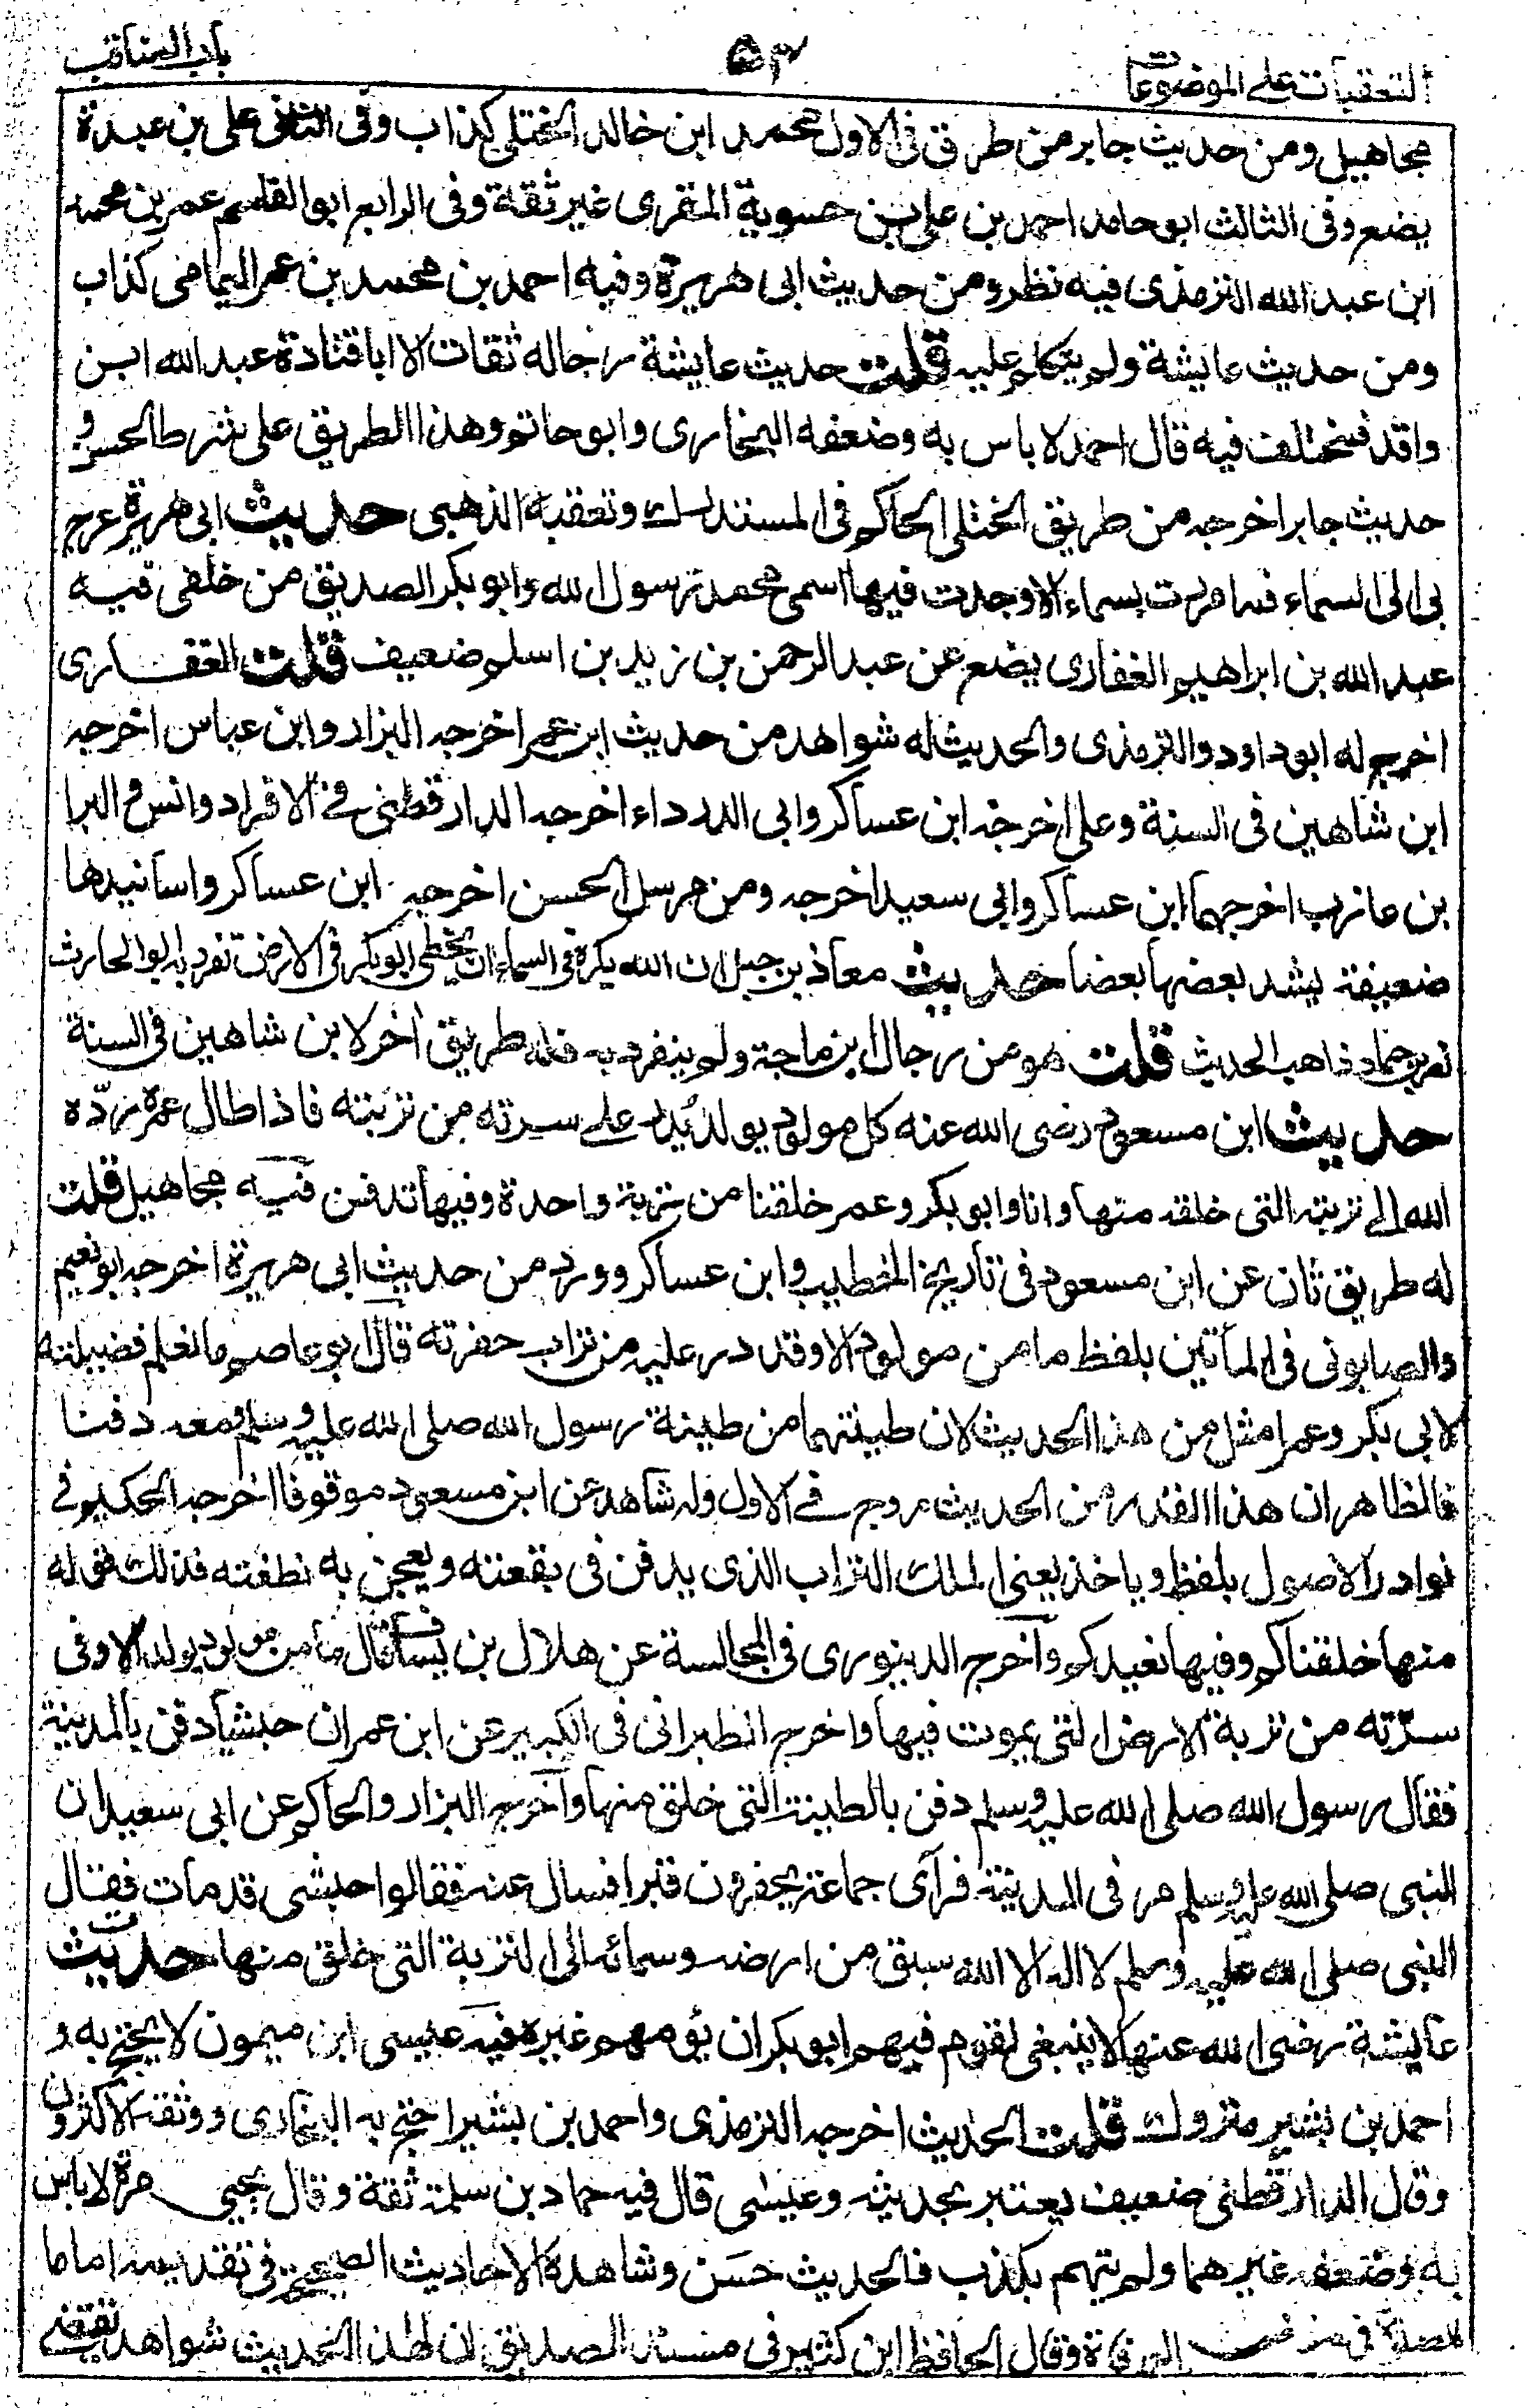 التعقبات على الموضوعات
۵۳
باب المناقب
مجاهيل ومن حديث جابر من طرق فى الاول محمد ابن خالد الختلى كذاب وفى الثانى على بن عبدة
يضع وفى الثالث ابو حامد احمد بن على بن حسوية المقرى غير ثقة وفى الرابع ابو القاسم عمر بن محمد
ابن عبد الله الترمذى فيه نظر ومن حديث ابى هريرة وفيه احمد بن محمد بن عمر اليمامى كذاب
ومن حديث عايشة ولم يتكلم عليه قلت حديث عايشة رجاله ثقات الا ابا قتادة عبد الله ابن
واقد فمختلف فيه قال احمد لا باس به وضعفه البخارى وابو حاتم وهذا الطريق على شرط الحسن و
حديث جابر اخرجه من طريق الختلى الحاكم فى المستدرك وتعقبه الذهبى حديث ابى هريرة عرج
بى الى السماء فما مررت بسماء الا وجدت فيها اسمى محمد رسول الله وابو بكر الصديق من خلفى فيه
عبد الله بن ابراهيم الغفارى يضع عن عبد الرحمن بن زيد بن اسلم ضعيف قلت الغفارى
اخرج له ابو داود والترمذى والحديث له شواهد من حديث ابن عمر اخرجه البزار وابن عباس اخرجه
ابن شاهين فى السنة وعلى اخرجه ابن عساكر وابى الدرداء اخرجه الدارقطنى فى الافراد وانس والبرا
بن عازب اخرجهما ابن عساكر وابى سعيد اخرجه ومن مرسل الحسن اخرجه ابن عساكر واسانيدها
ضعيفة يشد بعضها بعضا حديث معاذ بن جبل ان الله يكره فى السماء ان يخطى ابو بكر فى الارض تفرد به ابو الحارث
نصر بن حماد ذاهب الحديث قلت هو من رجال ابن ماجة ولم ينفرد به فله طريق اخر لابن شاهين فى السنة
حديث ابن مسعود رضى الله عنه كل مولود يولد يذر على سرته من تربته فاذا طال عمره ردّه
الله الى تربته التى خلقه منها وانا وابو بكر وعمر خلقنا من تربة واحدة وفيها تدفن فيه مجاهيل قلت
له طريق ثان عن ابن مسعود فى تاريخ الخطيب وابن عساكر وورد من حديث ابى هريرة اخرجه ابو نعيم
والصابونى فى المأتين بلفظ ما من مولود الا وقد در عليه من تراب حفرته قال ابو عاصم ما نعلم فضيلته
لابى بكر وعمر امثل من هذا الحديث لان طينتهما من طينة رسول الله صلى الله عليه وسلم ومعه دفنا
فالظاهر ان هذا القدر من الحديث مروج فى الاول وله شاهد عن ابن مسعود موقوفا اخرجه الحكيم فى
نوادر الاصول بلفظ وياخذ يعنى الملك التراب الذى يدفن فى بقعته ويعجن به نطفته فذلك قوله
منها خلقناكم وفيها نعيدكم وآخرج الدينورى فى المجالسة عن هلال بن يساف قال ما من مولود يولد الا وفى
سرّته من تربة الارض التى يموت فيها واخرج الطبرانى فى الكبير عن ابن عمر ان حبشيا دفن بالمدينة
فقال رسول الله صلى الله عليه وسلم دفن بالطينة التى خلق منها وآخرج البزار والحاكم عن ابى سعيد ان
النبى صلى الله عليه وسلم مر فى المدينة فرآى جماعة يحفرون قبرا فسال عنه فقالوا حبشى قدم مات فقال
النبى صلى الله عليه وسلم لا اله الا الله سبق من ارضه وسمائه الى التربة التى خلق منها حديث
عايشة رضى الله عنها لا ينبغى لقوم فيهم ابو بكر ان يؤمهم غيره فيه عيسى ابن ميمون لا يحتج به و
احمد بن بشير متروك قلت الحديث اخرجه الترمذى واحمد بن بشير احتج به البخارى ووثقه الاكثرون
وقال الدارقطنى ضعيف يعتبر بحديثه وعيسى قال فيه حماد بن سلمة ثقة وقال يحيى مرة لا باس
به وضعفه غيرهما ولم يتهم بكذب فالحديث حسن وشاهده الاحاديث الصحيحة فى تقديمه اماما
للصلاة فى مرض الوفاة وقال الحافظ ابن كثير فى مسند الصديق ان لهذا الحديث شواهد تقتضى